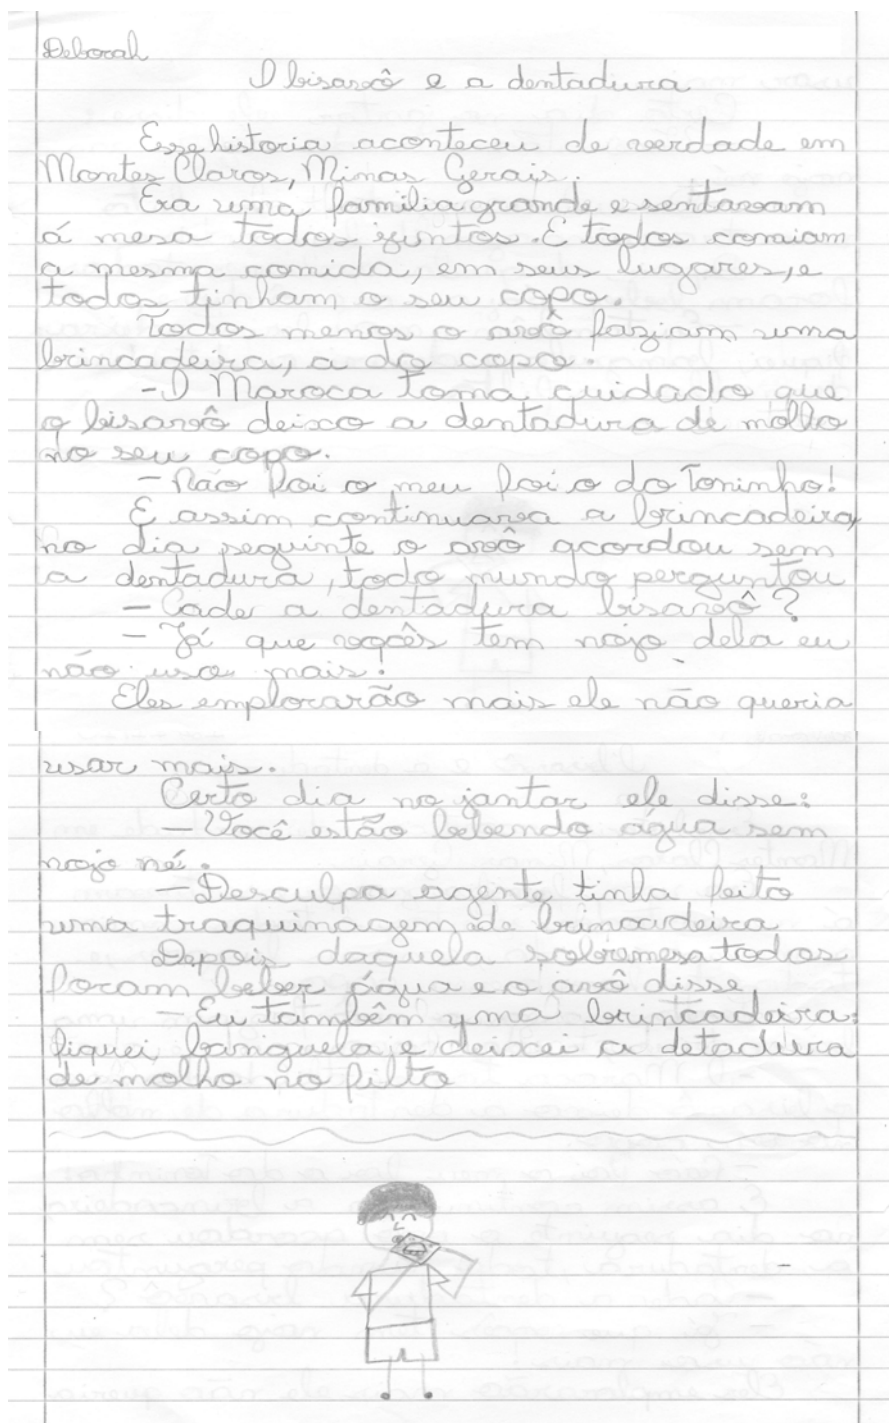 Deborah
O bisavô e a dentadura
Esse historia aconteceu de verdade em
Montes Claros, Minas Gerais.
Era uma familia grande e sentavam
á mesa todos juntos. E todos comiam
a mesma comida, em seus lugares, e
todos tinham o seu copo.
Todos menos o avô faziam uma
brincadeira, a do copo.
-O Maroca toma cuidado que
o bisavô deixo a dentadura de molho
no seu copo.
- Não foi o meu foi o do Toninho!
E assim continuava a brincadeira,
no dia seguinte o avô acordou sem
a dentadura, todo mundo perguntou
- Cade a dentadura bisavô?
- Já que vocês tem nojo dela eu
não uso mais!
Eles emplorarão mais ele não queria
usar mais.
Certo dia no jantar ele disse:
- Você estão bebendo água sem
nojo né.
- Desculpa agente tinha feito
uma traquinagem de brincadeira
Depois daquela sobremesa todos
foram beber água e o avô disse
- Eu também uma brincadeira:
fiquei banguela e deixei a detadura
de molho no filto